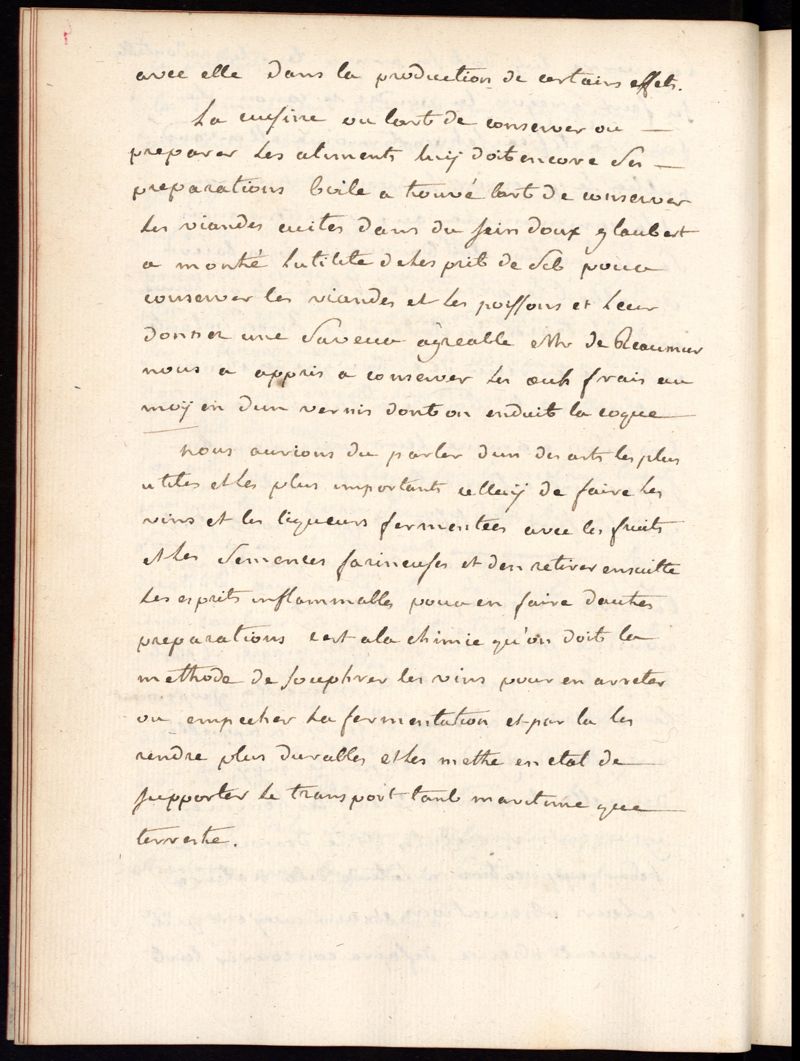 avec elle dans la production de certains effets.
La cuisine ou l'art de conserver ou
preparer les aliments luy doit encore des
preparations boile a trouvé l'art de conserver
les viandes cuites dans du sein doux glaubert
a montré lutilite de lesprit de sel pour
conserver les viandes et les poissons et leur
donner une saveur agreable et Mr de Reaumur
nous a appris a conserver les œufs frais au
moyen dun vernis dont on enduit la coque
nous aurions du parler dun des arts les plus
utiles et les plus importants celluy de faire les
vins et les liqueurs fermentées avec les fruits
et les semences farineuses et den retirer ensuitte
les esprits inflammables pour en faire dautres
preparations cest a la chimie qu'on doit la
methode de souphrer les vins pour en arreter
ou empecher la fermentation et par la les
rendre plus durables et les mettre en etat de
supporter le transport tant maritime que
terrestre.